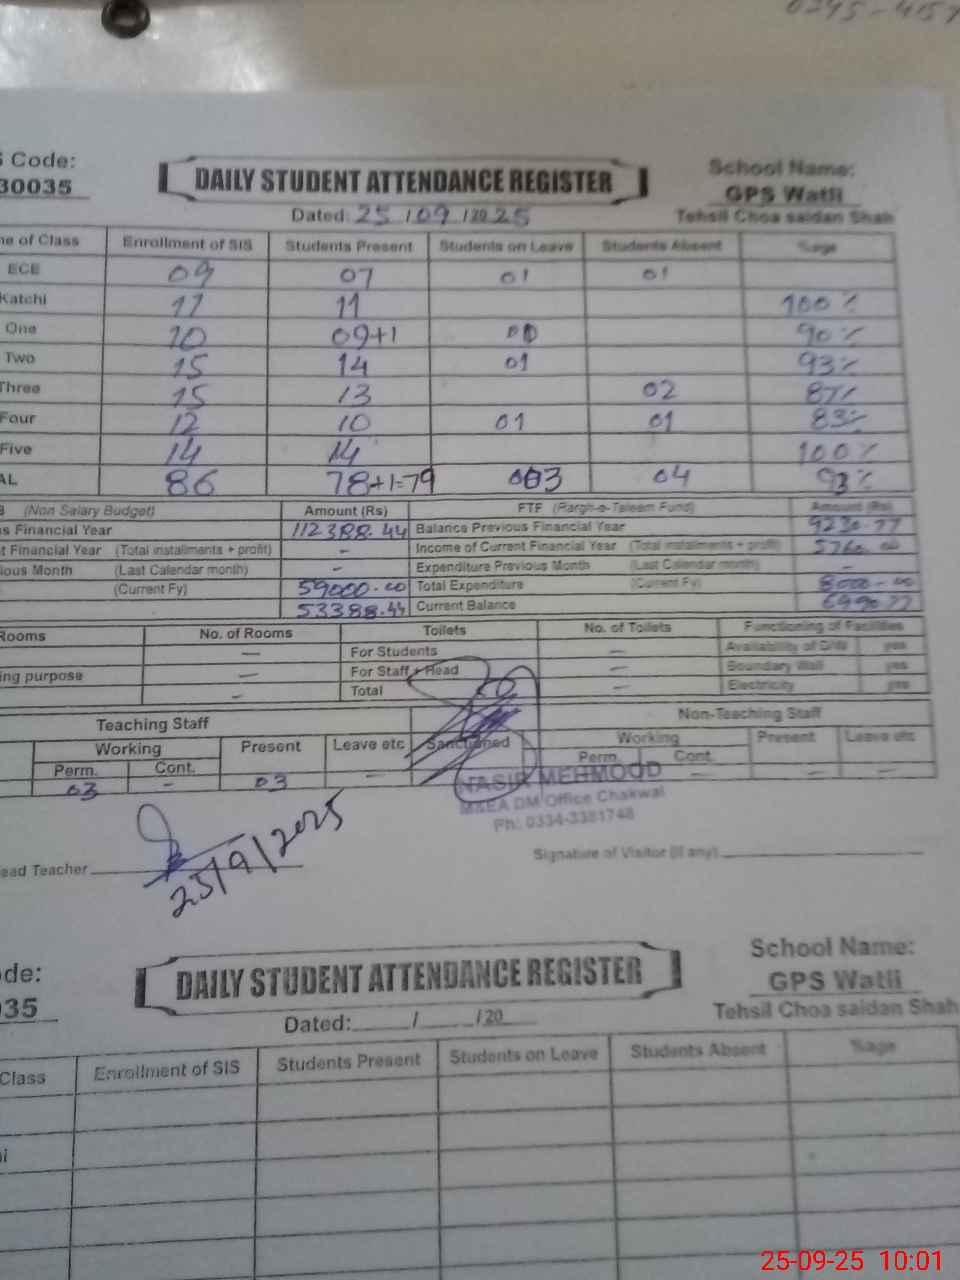 0345-415
S Code:
30035
DAILY STUDENT ATTENDANCE REGISTER
School Name:
GPS Watli
Tehsil Choa saidan Shah
Dated: 25 / 09 / 20 25
ne of Class Enrollment of SIS Students Present Students on Leave Students Absent %age
ECE 09 07 01 01
Katchi 11 11 100%
One 10 09+1 90%
Two 15 14 01 93%
Three 15 13 02 87%
Four 12 10 01 01 83%
Five 14 14 100%
AL 86 78+1=79 03 04 93%
B (Non Salary Budget) Amount (Rs) FTF (Fargh-e-Taleem Fund) Amount (Rs)
s Financial Year 112388.44 Balance Previous Financial Year 9230.77
t Financial Year (Total installments + profit) - Income of Current Financial Year (Total instalments + profit) 5760.00
ious Month (Last Calendar month) - Expenditure Previous Month (Last Calendar month) -
(Current Fy) 59000.00 Total Expenditure (Current Fy) 8000-00
53388.44 Current Balance 6990.77
Rooms No. of Rooms Toilets No. of Toilets Functioning of Facilities
— For Students — Availability of Drin yes
ing purpose — For Staff + Head — Boundary Wall yes
— Total — Electricity yes
Teaching Staff Non-Teaching Staff
Working Present Leave etc Sanctioned Working Present Leave etc
Perm. Cont. Perm. Cont.
03 - 03 — — — —
NASIR MEHMOOD
M&EA DM Office Chakwal
Ph: 0334-3381748
ead Teacher
25/9/2025
Signature of Visitor (If any)
de:
035
DAILY STUDENT ATTENDANCE REGISTER
School Name:
GPS Watli
Tehsil Choa saidan Shah
Dated: / /20
Class Enrollment of SIS Students Present Students on Leave Students Absent %age
i
25-09-25 10:01